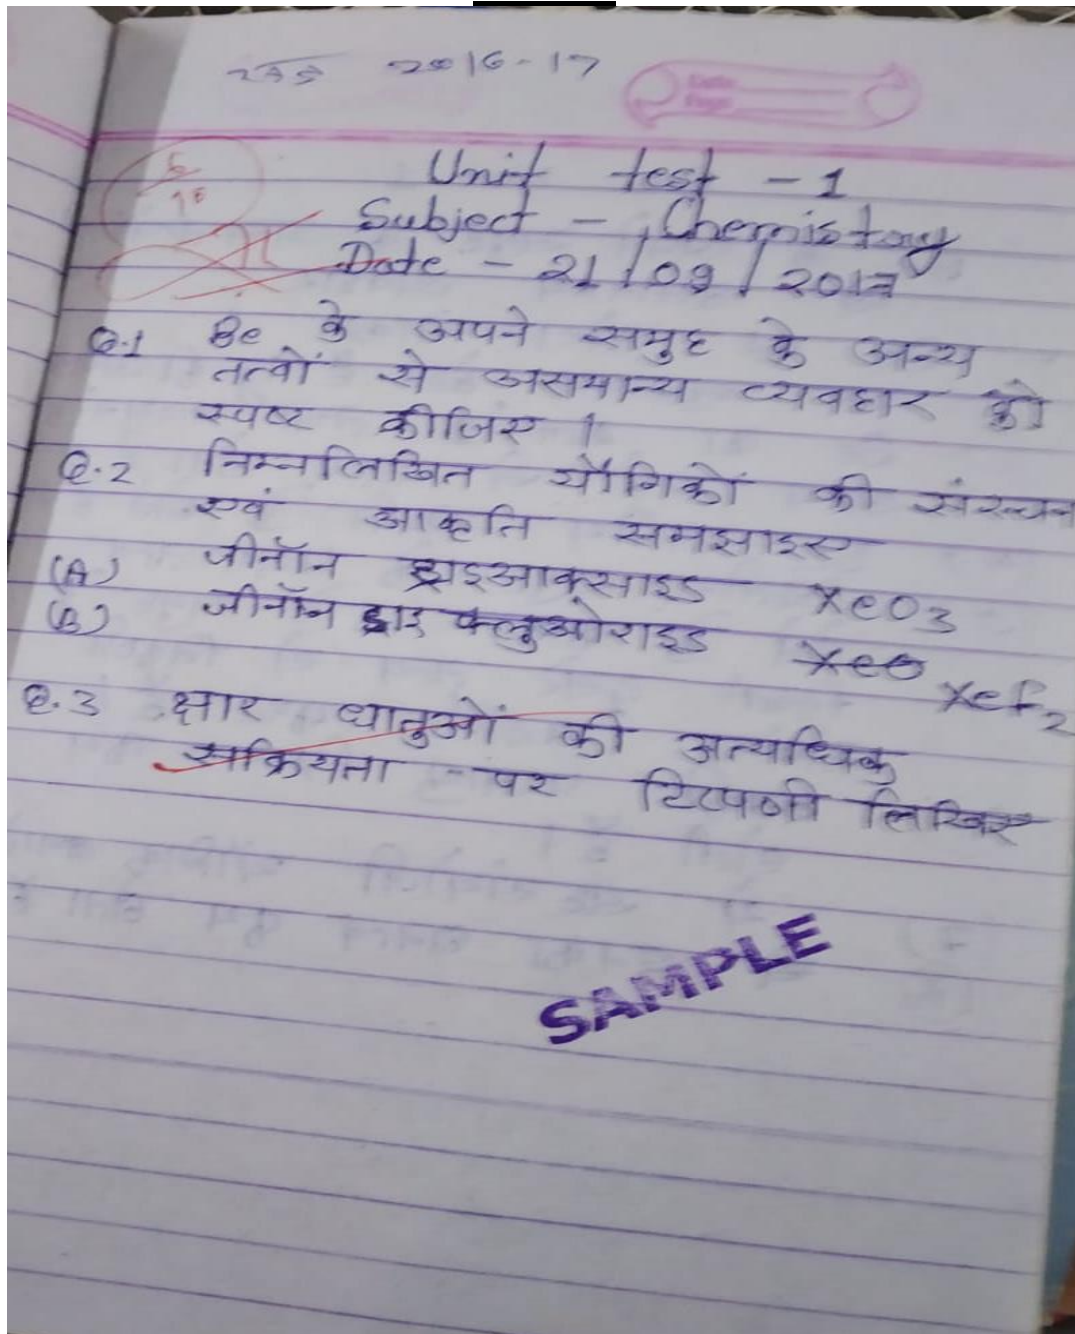 सत्र 2016-17
5/10
Unit test - 1
Subject - Chemistry
Date - 21/09/2017
Q.1 Be के अपने समुह के अन्य
तत्वों से असमान्य व्यवहार को
स्पष्ट कीजिए।
Q.2 निम्नलिखित यौगिकों की संरचना
एवं आकृति समझाइए
(A) जीनॉन ट्राइआक्साइड XeO3
(B) जीनॉन डाइ फ्लुओराइड XeF2
Q.3 क्षार धातुओं की अत्यधिक
सक्रियता पर टिप्पणी लिखिए
SAMPLE